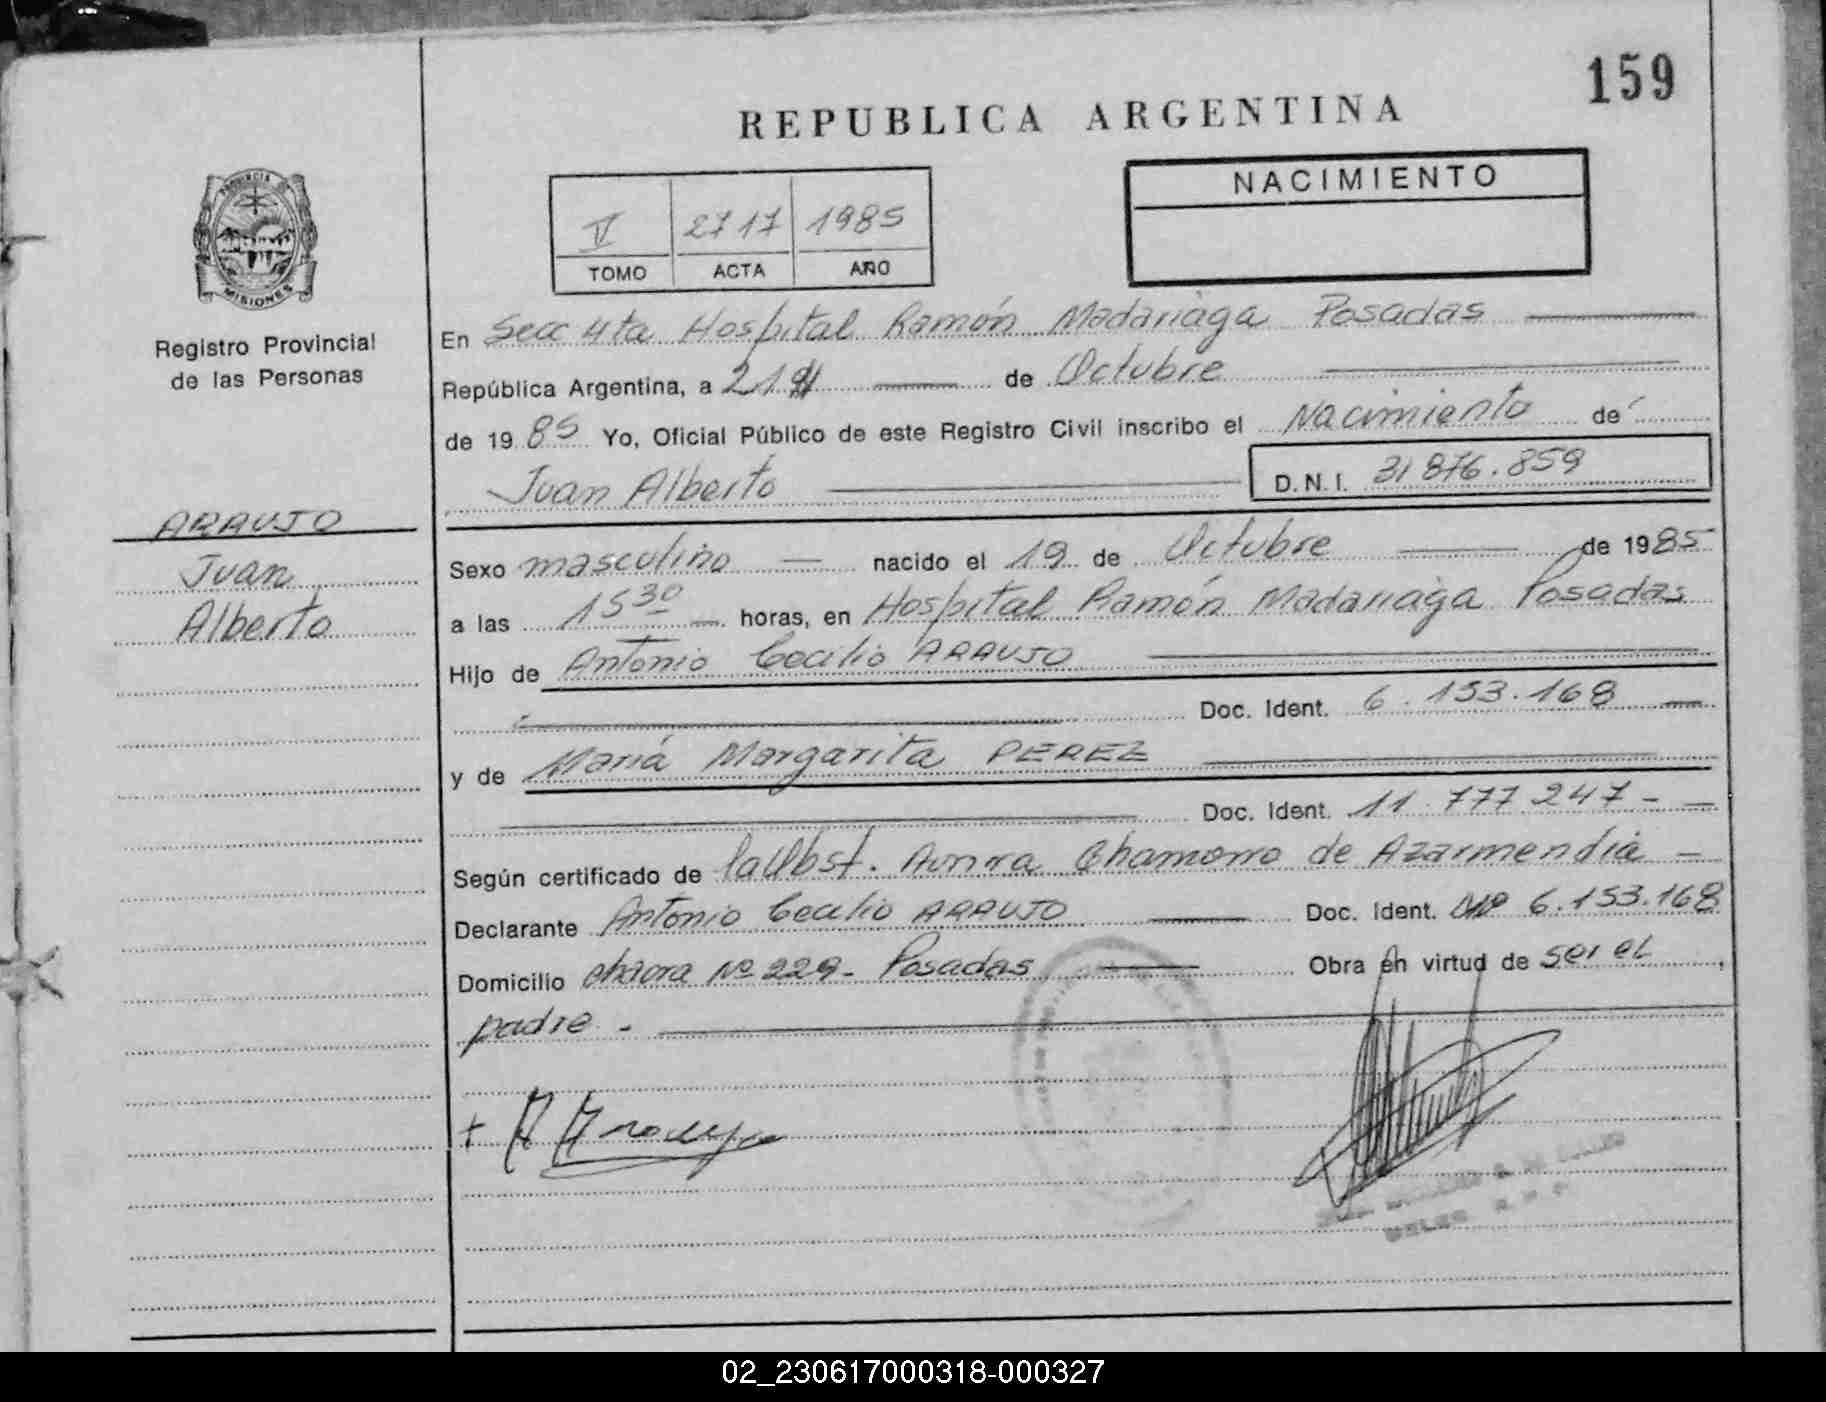 159
REPUBLICA ARGENTINA
PROVINCIA DE
MISIONES
Registro Provincial
de las Personas
V 2717 1985
TOMO ACTA AÑO
NACIMIENTO
En Secc 4ta Hospital Ramón Madariaga Posadas
República Argentina, a 21 de Octubre
de 1985 Yo, Oficial Público de este Registro Civil inscribo el Nacimiento de
Juan Alberto D.N.I. 31876.859
ARAUJO
Juan
Alberto
Sexo masculino nacido el 19 de Octubre de 1985
a las 15 30 horas, en Hospital Ramón Madariaga Posadas
Hijo de Antonio Cecilio ARAUJO
Doc. Ident. 6.153.168
y de María Margarita PEREZ
Doc. Ident. 11.777 247-
Según certificado de la Obst. Chamorro de Azarmendia
Declarante Antonio Cecilio ARAUJO Doc. Ident. 6.153.168
Domicilio chacra Nº 229- Posadas Obra en virtud de ser el,
padre.-
02_230617000318-000327